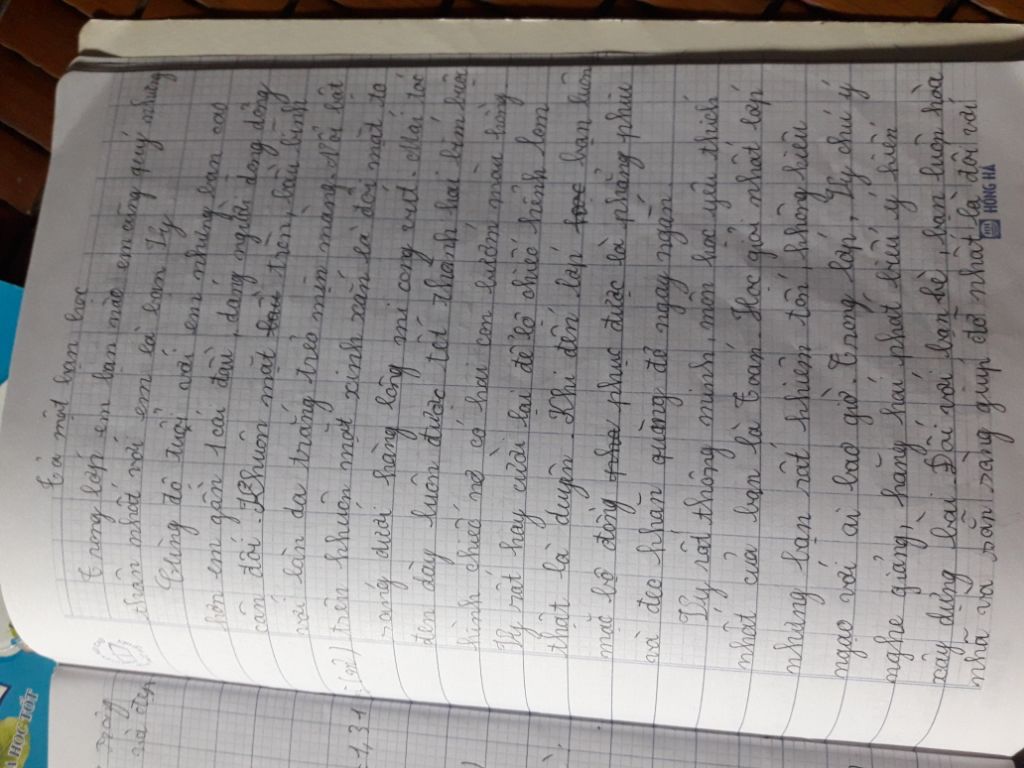 Tả một bạn học
Trong lớp em bạn mà em cũng quý nhưng
thân nhất với em là bạn Vy
Cùng độ tuổi với em nhưng bạn cao
hơn em gần 1 cái đầu, dáng người dong dỏng
cân đối. Khuôn mặt bầu tròn, bầu bĩnh
với làn da trắng trẻo mịn màng. Nổi bật
trên khuôn mặt xinh xắn là đôi mặt to
ráng dưới hàng lông mi cong vút. Mái tóc
đen dày luôn được tết thành hai bím buộc
bằng chiếc nơ có hai con bướm màu hồng
Vy rất hay cười lại để lộ chiếc khểnh lom
thật là duyên. Khi đến lớp bạn luôn
mặc bộ đồng phục được là phẳng phiu
và đeo khăn quàng đỏ ngay ngắn.
Vy rất thông minh, môn học yêu thích
nhất của bạn là Toán. Học giỏi nhất lớp
nhưng bạn rất khiêm tốn, không kiêu
ngạo với ai bao giờ. Trong lớp, Vy chú ý
nghe giảng, hăng hái phát biểu ý kiến
xây dựng bài. Đối với bạn bè, bạn luôn hòa
nhã và sẵn sàng giúp đỡ nhất là đối với
HỒNG HÀ
HỌC TỐT
1,31